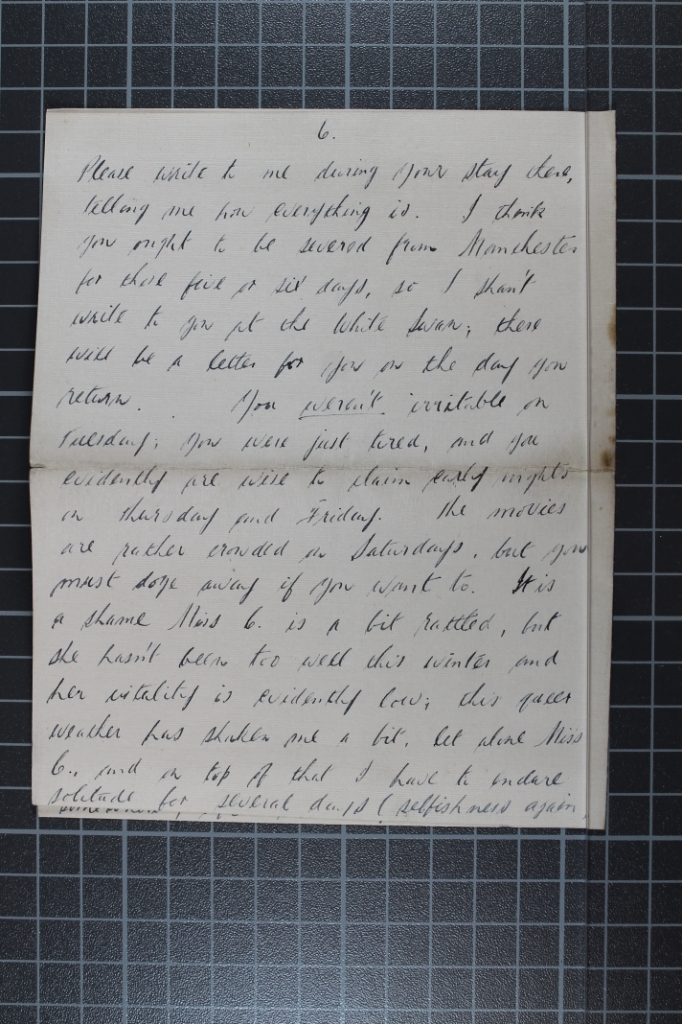 6.
Please write to me during your stay there,
telling me how everything is. I think
you ought to be severed from Manchester
for those five or six days, so I shan't
write to you at the White Swan; there
will be a letter for you on the day you
return. . You weren't irritable on
Tuesday; you were just tired, and you
evidently are wise to claim early nights
on Thursday and Friday. The movies
are rather crowded on Saturdays, but you
must doze away if you want to. It is
a shame Miss G. is a bit rattled, but
she hasn't been too well this winter and
her vitality is evidently low; this queer
weather has shaken me a bit, let alone Miss
G., and on top of that I have to endure
solitude for several days (selfishness again,